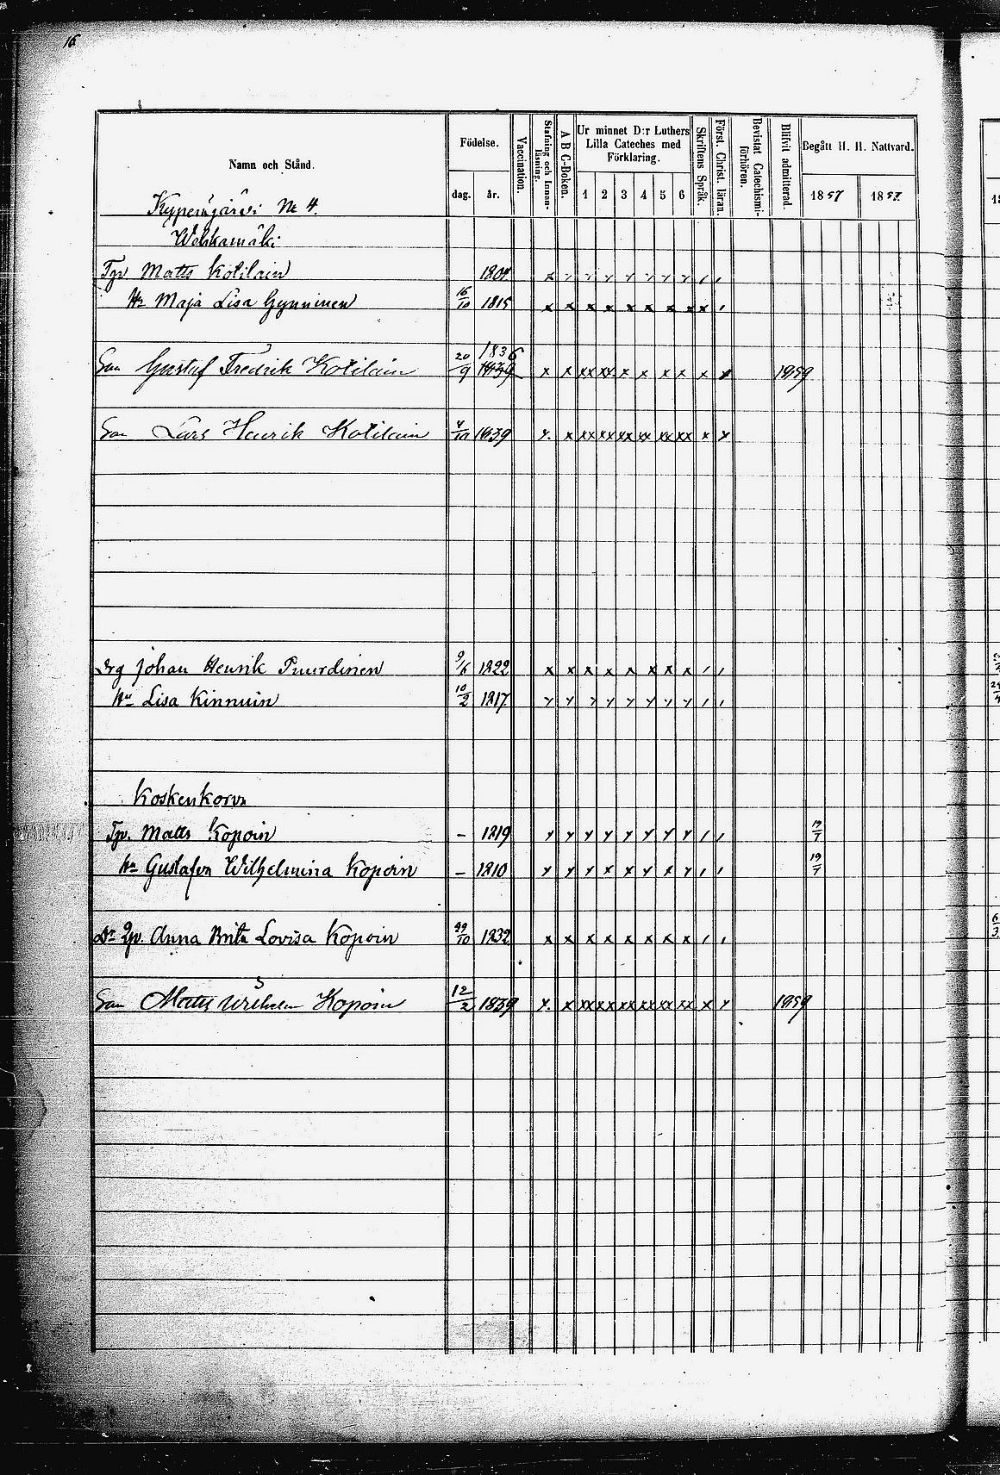 16
Namn och Stånd. Födelse. dag. år. Vaccination. Stafning och Innanläsning. A B C-Boken. Ur minnet D:r Luthers Lilla Cateches med Förklaring. 1 2 3 4 5 6 Skriftens Språk. Först. Christ. läran. Bevistat Catechismiförhören. Blifvit admitterad. Begått H. H. Nattvard. 1857 1858
№ 4.
Matts Kotilain
Hu Maja Lisa Gynninen 16/10 1815 x x x x x x x x x
Son Gustaf Fredrik Kotilain 20/9 1836 1839 x x xx xx x x x x x x 1859
Son Lars Henrik Kotilain 1839 x x xx xx xx xx xx xx x x
Johan Henrik 9/6 1822 x x x x x x x x
Hu Lisa Kinnuin 10/2 1817
Koskenkorva
Matts Kopoin – 1819 19/7
Hu Gustafva Wilhelmina Kopoin – 1810 19/7
Anna Brita Lovisa Kopoin 29/10 1832 x x x x x x x x
Son Matts Wilhelm Kopoin 12/2 1839 x x xx xx xx xx xx xx x x 1859